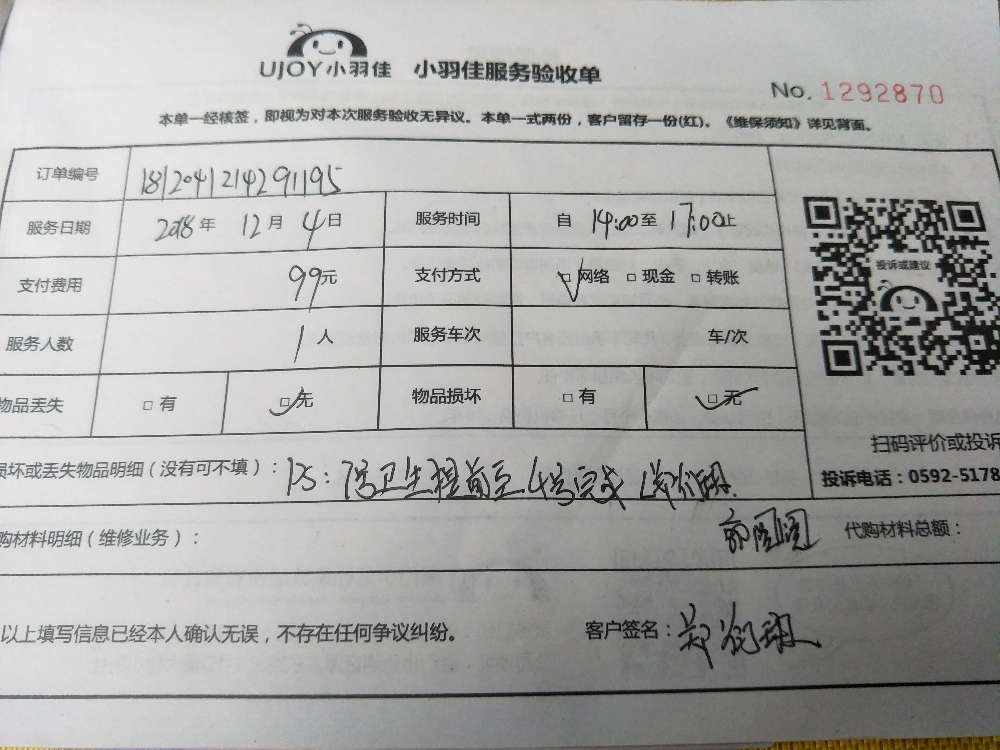 UJOY小羽佳 小羽佳服务验收单
No. 1292870
本单一经核签，即视为对本次服务验收无异议。本单一式两份，客户留存一份(红)。《维保须知》详见背面。
订单编号 1812041214291195
服务日期 2018年 12月 4日 服务时间 自 14:00至 17:00止
支付费用 99元 支付方式 □网络 □现金 □转账
服务人数 1人 服务车次 车/次
物品丢失 □有 □无 物品损坏 □有 □无
投诉或建议
扫码评价或投诉
损坏或丢失物品明细（没有可不填）： PS：7号卫生提前至4号完成
投诉电话：0592-5178
购材料明细（维修业务）： 代购材料总额：
以上填写信息已经本人确认无误，不存在任何争议纠纷。 客户签名：郑